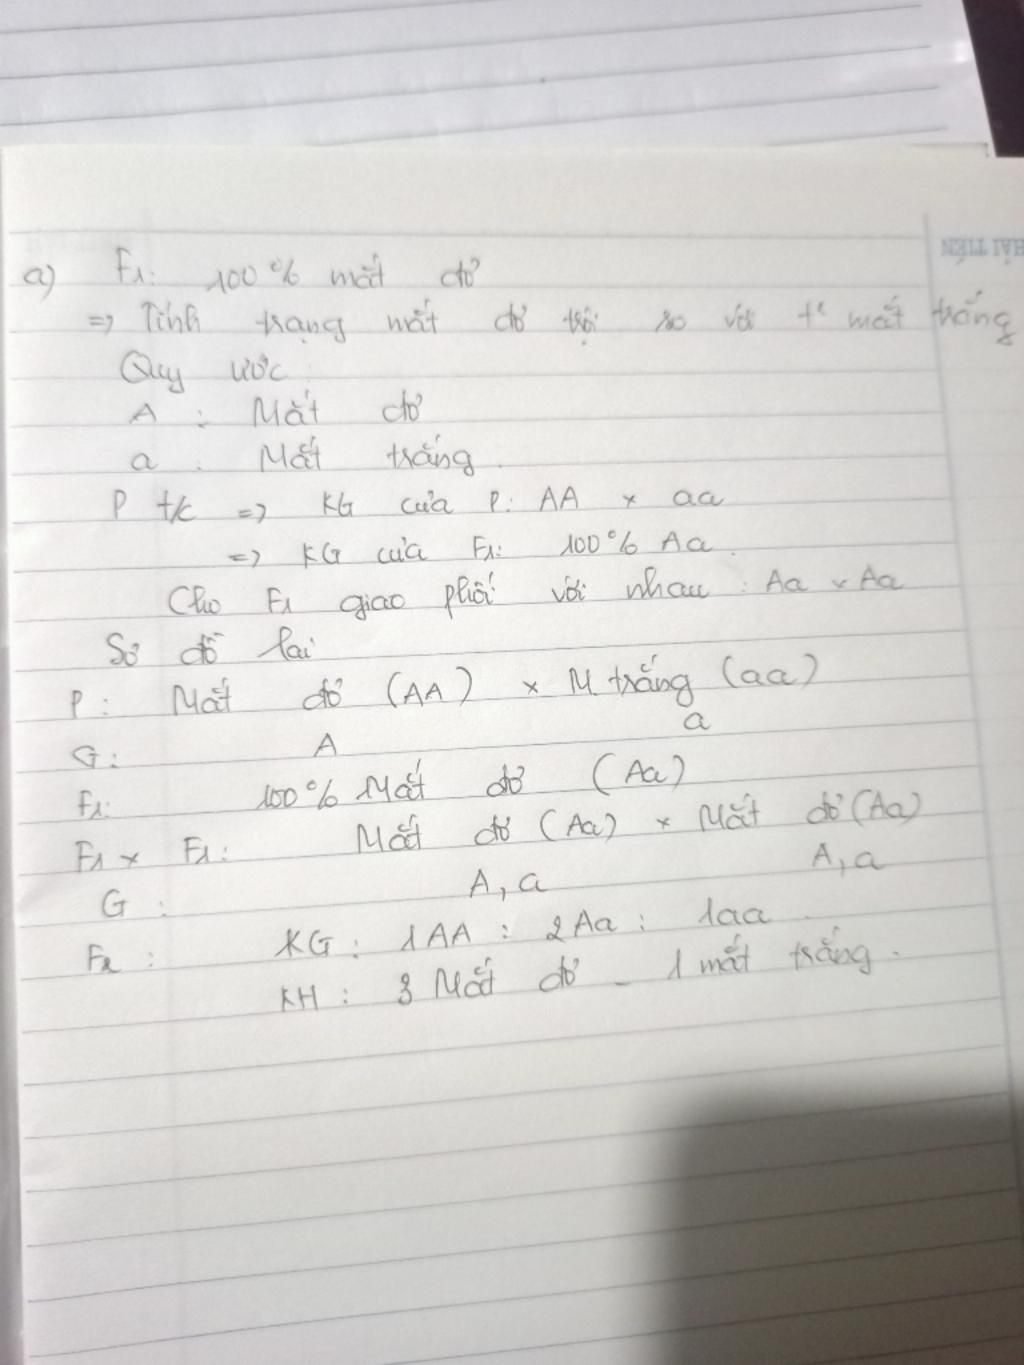 HẢI TIẾN
a) F1: 100% mắt đỏ
=> Tính trạng mắt đỏ trội so với t² mắt trắng
Quy ước:
A : Mắt đỏ
a : Mắt trắng.
P t/c => KG của P: AA x aa
=> KG của F1: 100% Aa.
Cho F1 giao phối với nhau : Aa x Aa
Sơ đồ lai
P: Mắt đỏ (AA) x M trắng (aa)
G: A a
F1: 100% Mắt đỏ (Aa)
F1 x F1: Mắt đỏ (Aa) x Mắt đỏ (Aa)
G : A, a A, a
F2 : KG : 1AA : 2Aa : 1aa
KH : 3 Mắt đỏ - 1 mắt trắng.